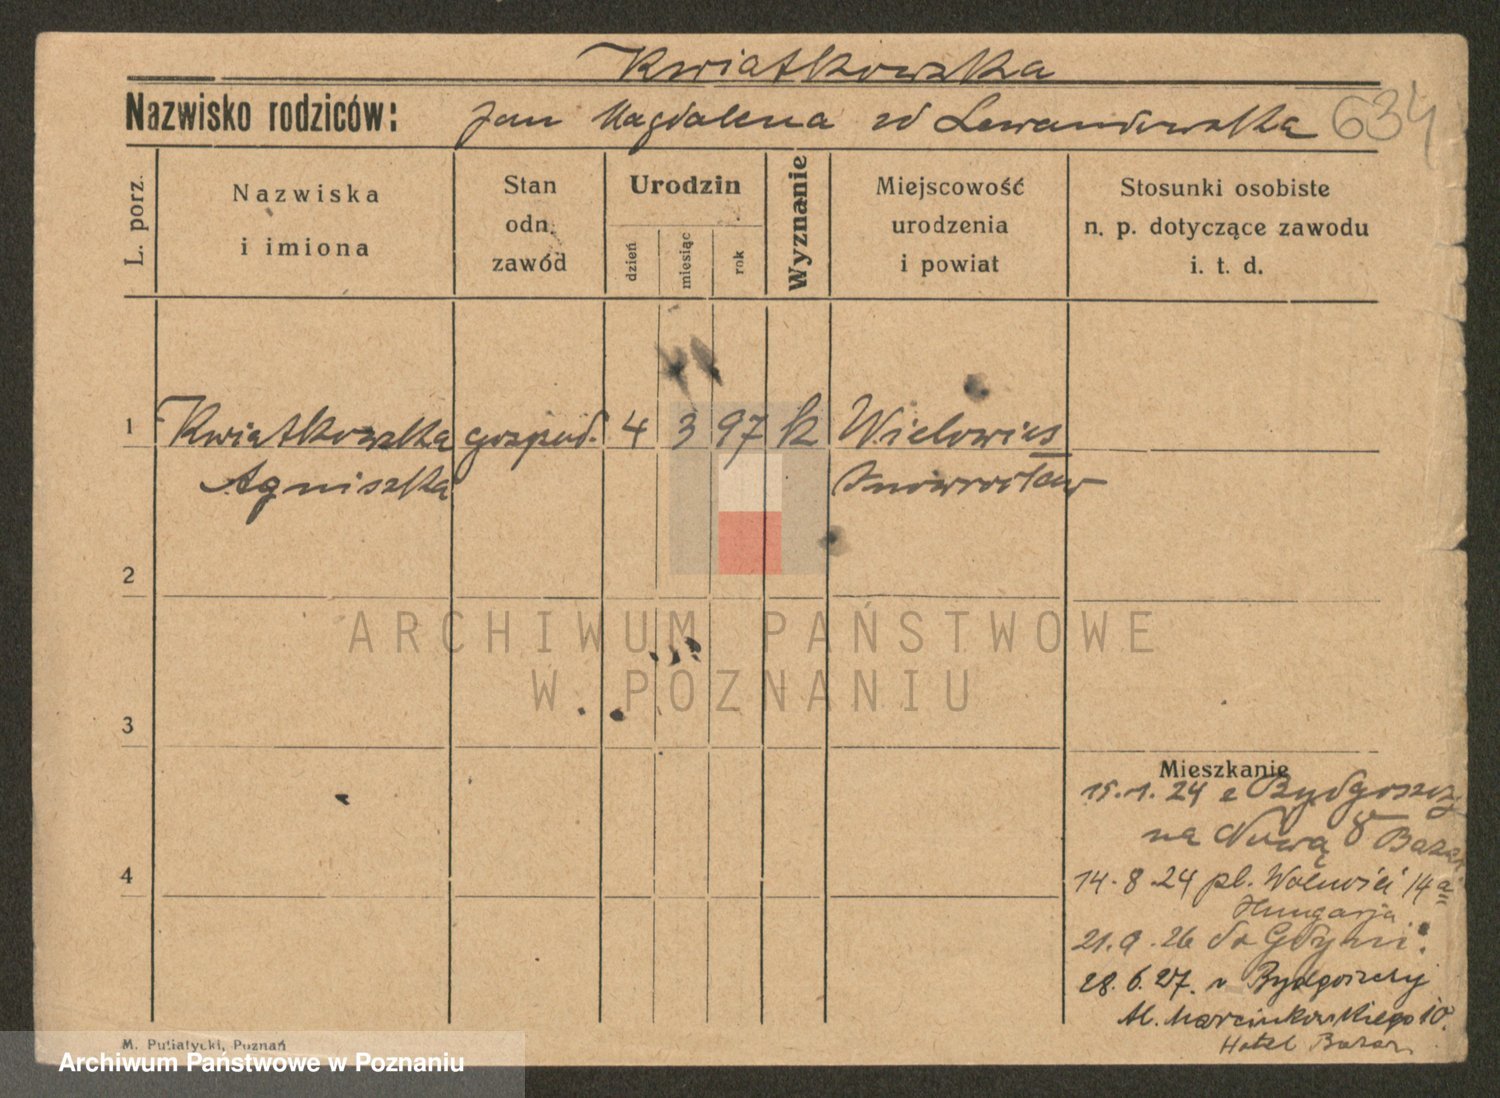 Kwiatkowska
Nazwisko rodziców: Jan Magdalena zd Lewandowska 634
L. porz.
Nazwiska
i imiona
Stan
odn.
zawód
Urodzin
dzień
miesiąc
rok
Wyznanie
Miejscowość
urodzenia
i powiat
Stosunki osobiste
n. p. dotyczące zawodu
i. t. d.
1 Kwiatkowska gospod. 4 3 97 k Wielowies
Agniszka Inowrocław
2
ARCHIWUM PAŃSTWOWE
W POZNANIU
3
Mieszkanie
15.1.24 z Bydgoszcz
na Nową 8 Bazar
4
14.8.24 pl. Wolności 14a
Hungarja
21.9.26 do Gdyni.
28.6.27. v Bydgoszczy
Al. Marcinkowskiego 10.
Hotel Bazar
M. Putiatycki, Poznań
Archiwum Państwowe w Poznaniu